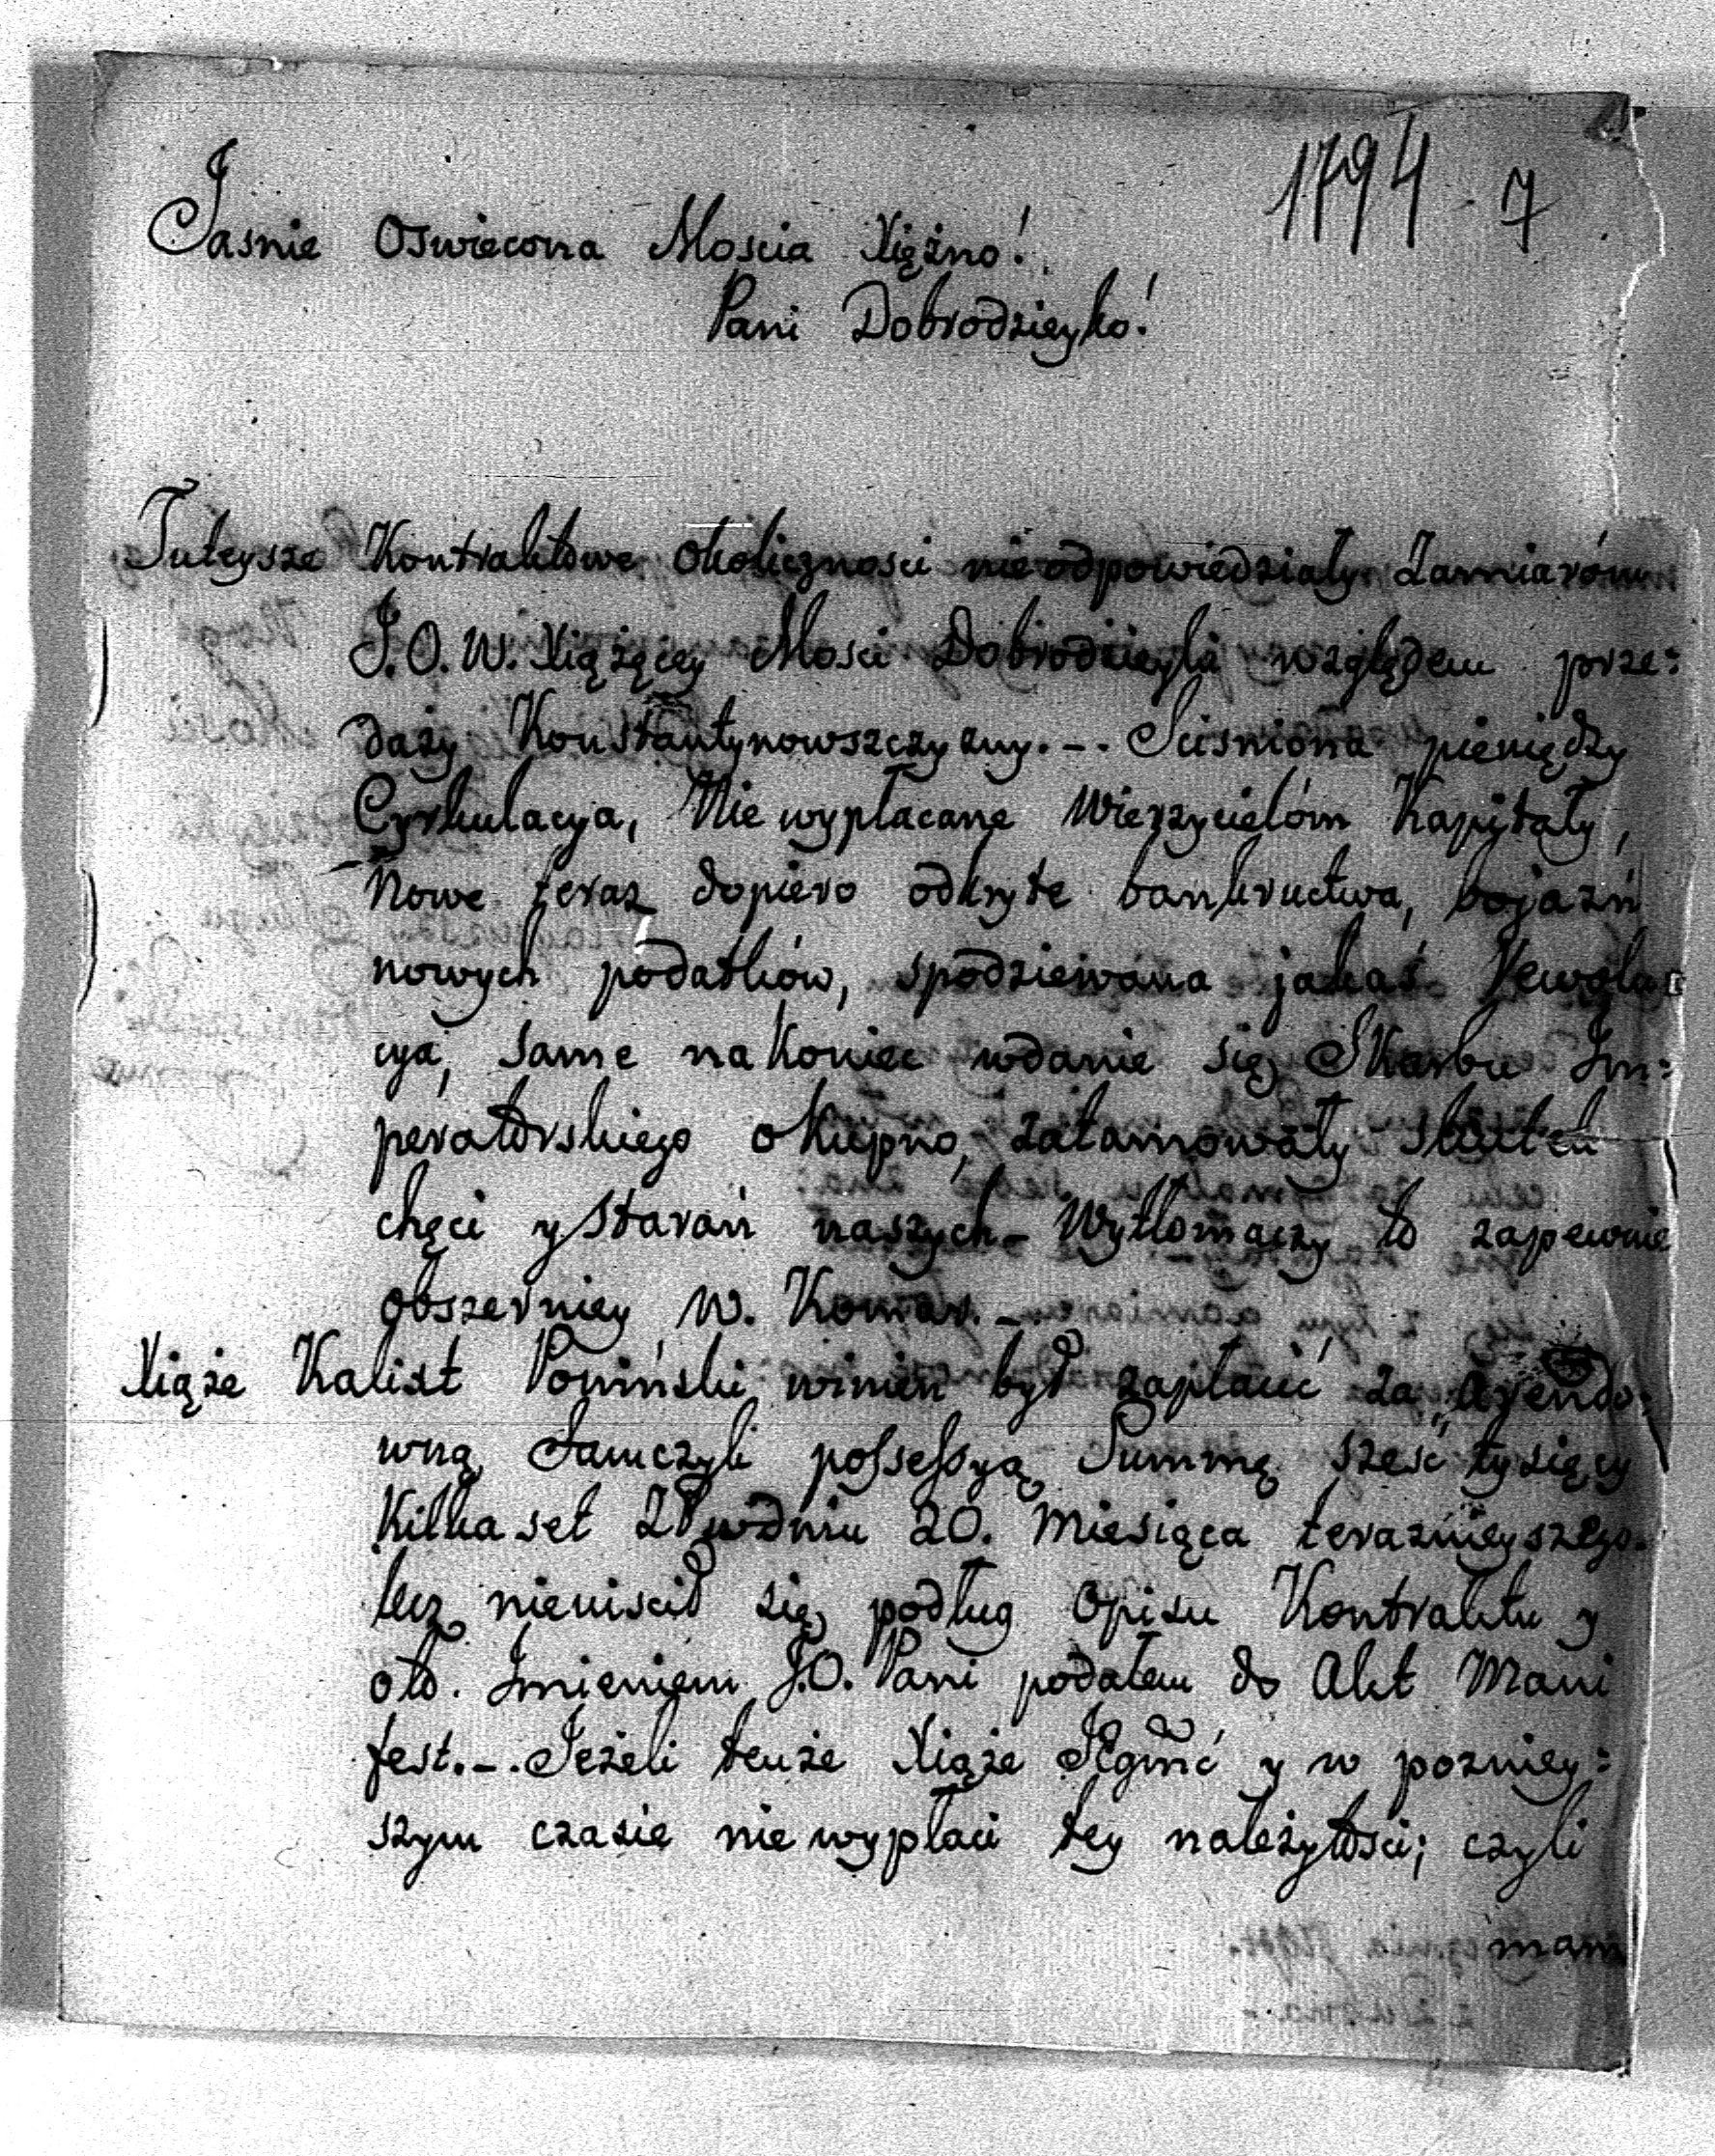 1794 7
Jasnie Oswiecona Moscia Xiężno!
Pani Dobrodzieyko!
Tuteysze Kontraktowe okoliczności nie odpowiedziały Zamiaróm
J.O.W. Xiążęcey Mosci Dobrodzieyki względem prze:
daży Konstantynowszczyzny. -. Scisniona pieniędzy
Cyrkulacya, Nie wypłacane Wierzycielóm Kapitały,
Nowe teraz dopiero odkryte bankructwa, bojazń
nowych podatków, spodziewana jakaś Rewolu
cya, same nakoniec wdanie się Skarbu Im:
peratorskiego okupno, zatamowały skutek
chęci y starań naszych - Wytłomaczy to zapewnie
obszerniey W. Komar. -
Xiąże Kalixt Poniński winien był zapłacić za arendo:
wną Samczyk possessyą Summę szesc tysięcy
Kilka set Zł wdniu 20. Miesiąca teraznieyszego.
lecz nieuiscił się podług Opisu Kontraktu y
oto. Imieniem J.O. Pani podałem do Akt Mani
fest. -. Jeżeli tenże Xiąże Jegmć y w pozniey:
szym czasie nie wypłaci tey należytosci; czyli
mam